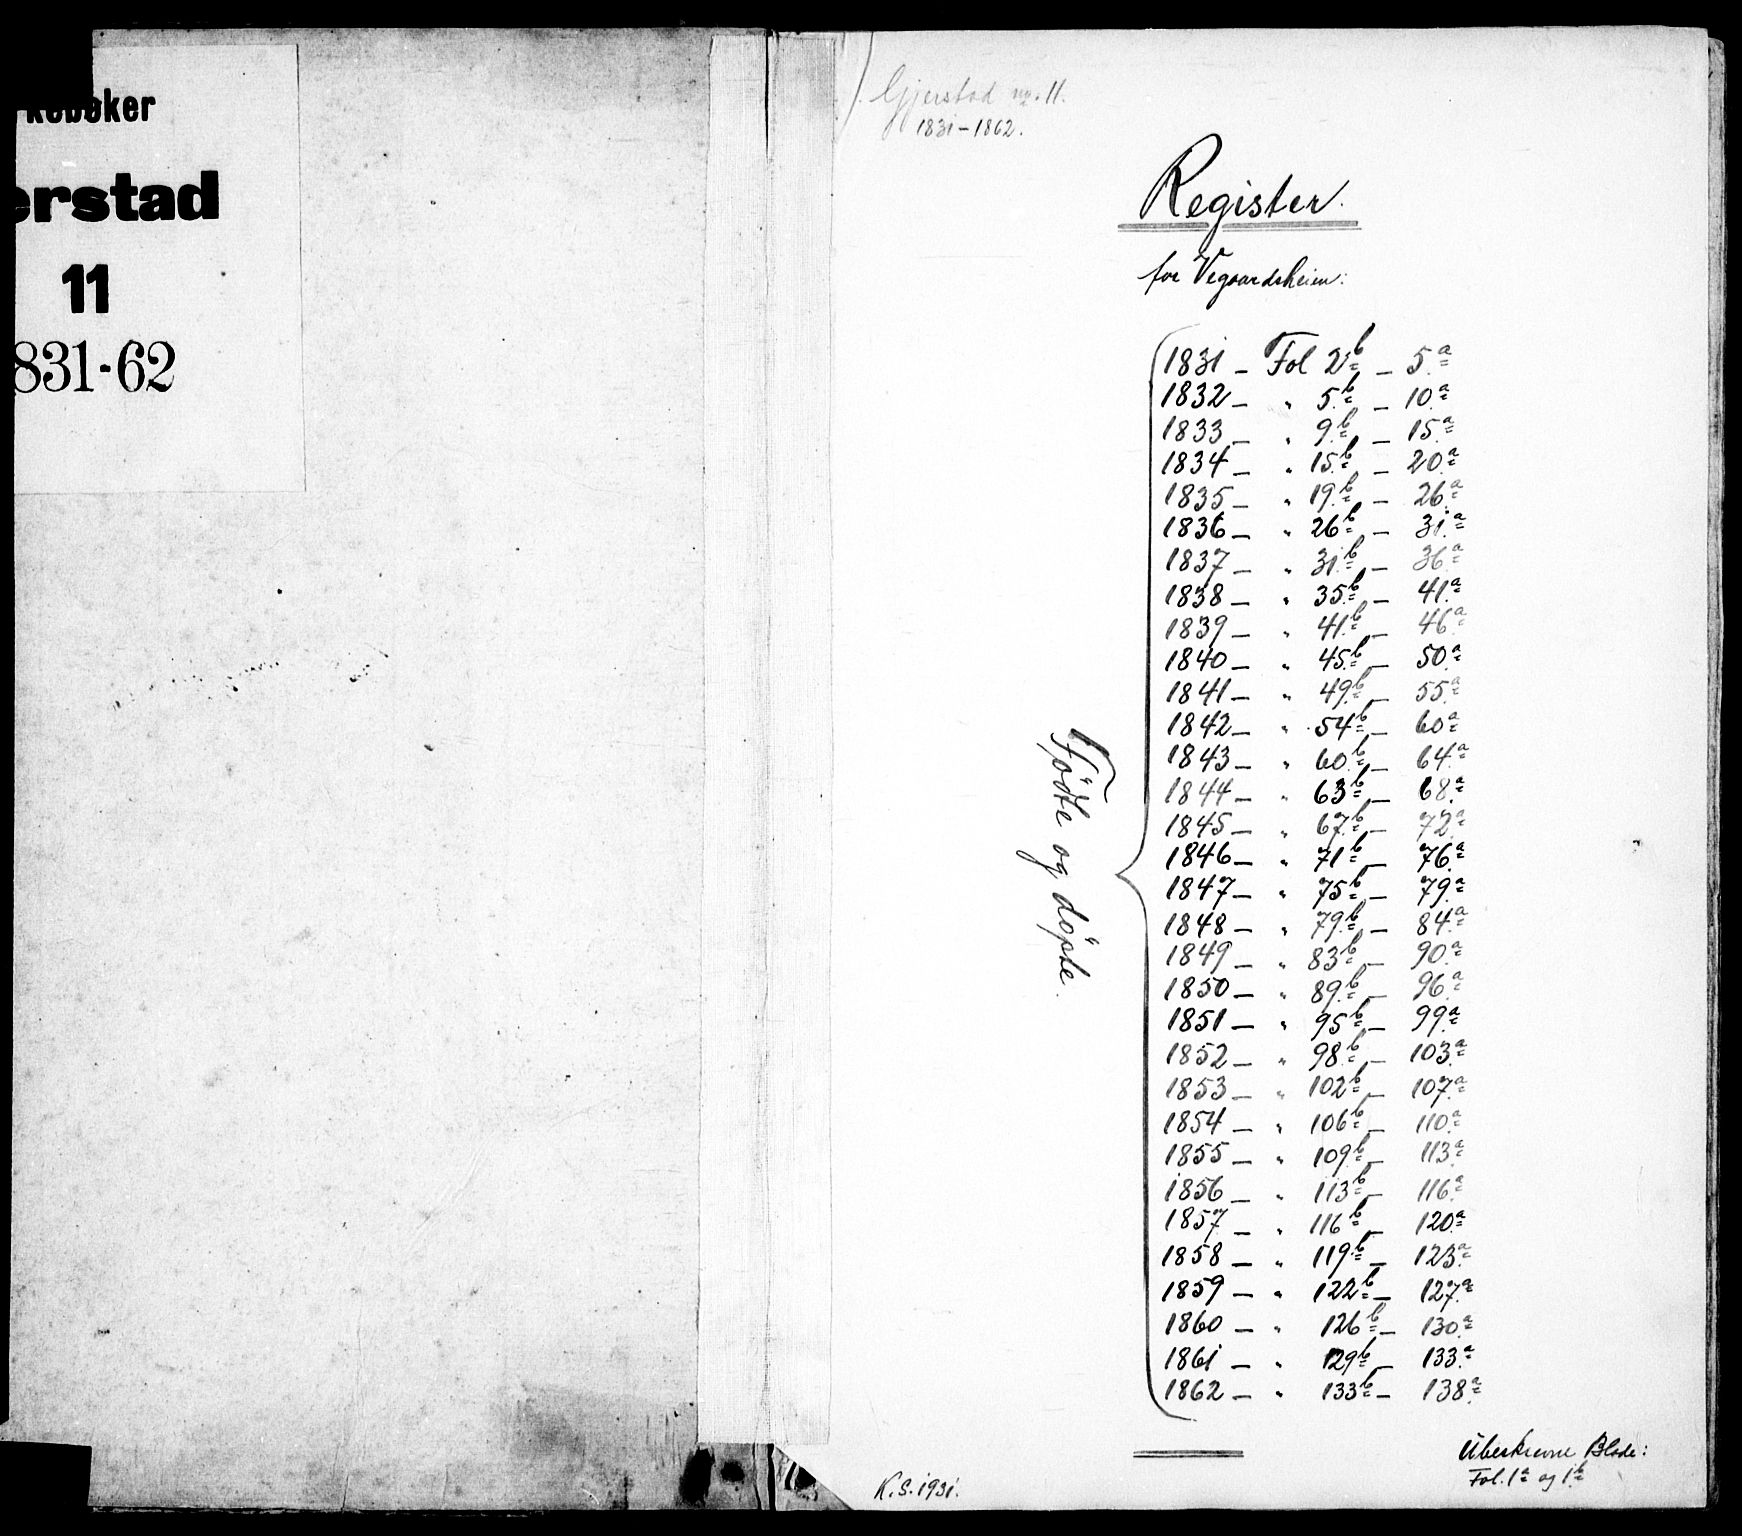 kebøker
erstad
11
831-62
Gjerstad nr. 11.
1831–1862.
Register.
for Vegaardsheien:
Födte og döpte.
1831 – Fol 2b – 5a
1832 – " 5b – 10a
1833 – " 9b – 15a
1834 – " 15b – 20a
1835 – " 19b – 26a
1836 – " 26b – 31a
1837 – " 31b – 36a
1838 – " 35b – 41a
1839 – " 41b – 46a
1840 – " 45b – 50a
1841 – " 49b – 55a
1842 – " 54b – 60a
1843 – " 60b – 64a
1844 – " 63b – 68a
1845 – " 67b – 72a
1846 – " 71b – 76a
1847 – " 75b – 79a
1848 – " 79b – 84a
1849 – " 83b – 90a
1850 – " 89b – 96a
1851 – " 95b – 99a
1852 – " 98b – 103a
1853 – " 102b – 107a
1854 – " 106b – 110a
1855 – " 109b – 113a
1856 – " 113b – 116a
1857 – " 116b – 120a
1858 – " 119b – 123a
1859 – " 122b – 127a
1860 – " 126b – 130a
1861 – " 129b – 133a
1862 – " 133b – 138a
Ubeskrevne Blade:
Fol. 1a og 1b
K.S. 1931.